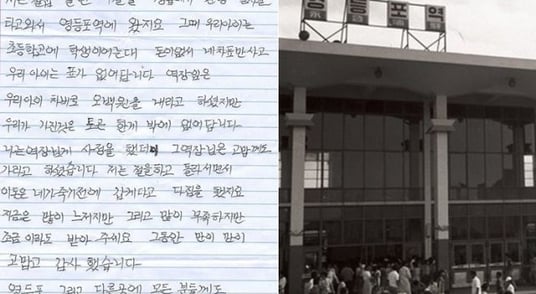 타고와서 영등포역에 왔지요 그때 우리아이는
초등학고에 학생이여는대 돈이없서 내차표만사고
우리아이는 표가 없어답니다 역장님은
우리아이 차비로 오백원을 내라고 하셨지만
우리가 가진것은 토큰 한게 박에 없어답니다
나는역장님게 사정을 했더니 그역장님은 고맙께도
가라고 하셨습니다 저는 절을하고 돌아서면서
이돈은 내가죽기전에 갑게다고 다짐을 했지요
지금은 많이 느저지만 그리고 많이 부족하지만
조금이라도 받아 주세요 그동안 만이 만이
고맙고 감사 했습니다
영등포 그리고 다른곳에 모든 분들게도
영등포역